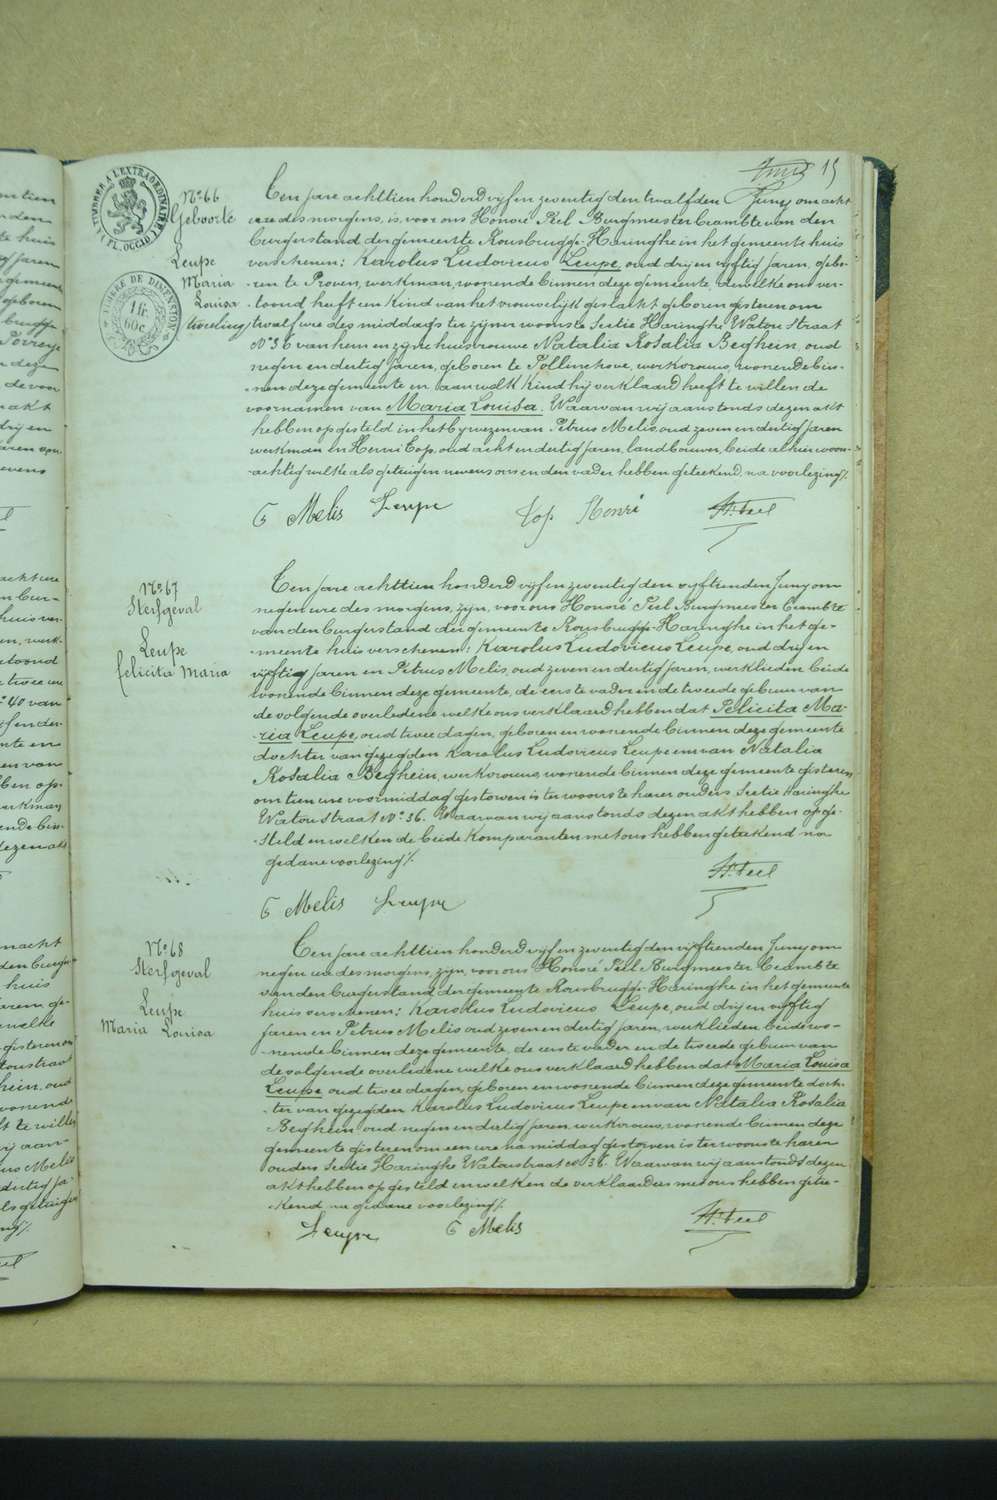 15
TIMBRE A L'EXTRAORDINAIRE
FL. OCCID.
TIMBRE DE DIMENSION
1 fr.
60c.
No 66
Geboorte
Leupe
Maria
Louisa
tweeling
Een jare achttien honderd vijf en zeventig den twalfden Juny om acht
ure des morgens, is voor ons Honoré Peel Burgmeester Ceambte van den
burgerstand der gemeente Rousbrugge-Haringhe in het gemeente huis
verschenen: Karolus Ludovicus Leupe, oud drij en vijftig jaren, gebo-
-ren te Proven, werkman, wonende binnen deze gemeente, dewelke ons ver-
-toond heeft een kind van het vrouwelijk geslacht geboren gisteren om
twalf ure des middags ter zijner woonste Sectie Haringhe Watou straat
No 36 van hem en zijne huisvrouwe Natalia Rosalia Beghein, oud
negen en dertig jaren, geboren te Pollinchove, werkvrouw, wonende bin-
-nen deze gemeente en aan welk kind hij verklaard heeft te willen de
voornamen van Maria Louisa. Waarvan wij aanstonds dezen akt
hebben opgesteld in het bywezen van Petrus Melis, oud zeven en dertig jaren
werkman en Henri Top, oud acht en dertig jaren, landbouwer, beide alhier woon-
-achtig welke als getuigen nevens ons en den vader hebben geteekend, na voorlezing %
G Melis Leupe Top Henri H. Peel
No 67
Sterfgeval
Leupe
Felicitia Maria
Een jare achttien honderd vijf en zeventig den vijftienden Juny om
negen ure des morgens, zijn, voor ons Honoré Peel Burgmeester Ceambte
van den burgerstand der gemeente Rousbrugge-Haringhe in het ge-
-meente huis verschenen: Karolus Ludovicus Leupe, oud drij en
vijftig jaren en Petrus Melis, oud zeven en dertig jaren, werklieden beide
wonende binnen deze gemeente, de eerste vader en de tweede gebuur van
de volgende overledene welke ons verklaard hebben dat Felicita Ma-
-ria Leupe, oud twee dagen, geboren en wonende binnen deze gemeente
dochter van gezegden Karolus Ludovicus Leupe en van Natalia
Rosalia Beghein, werkvrouw, wonende binnen deze gemeente gisteren
om tien ure voormiddag gestorven is ter woonste harer ouders Sectie Haringhe
Watou straat No 36. Waarvan wij aanstonds dezen akt hebben opge-
-steld en welken de beide komparanten met ons hebben geteekend na
gedane voorlezing %
G Melis Leupe H. Peel
No 68
Sterfgeval
Leupe
Maria Louisa
Een jare achttien honderd vijf en zeventig den vijftienden Juny om
negen ure des morgens, zijn, voor ons Honoré Peel Burgmeester Ceambte
van den burgerstand der gemeente Rousbrugge-Haringhe in het gemeente
huis verschenen: Karolus Ludovicus Leupe, oud drij en vijftig
jaren en Petrus Melis oud zeven en dertig jaren, werklieden beide wo-
-nende binnen deze gemeente, de eerste vader en de tweede gebuur van
de volgende overledene welke ons verklaard hebben dat Maria Louisa
Leupe, oud twee dagen, geboren en wonende binnen deze gemeente doch-
-ter van gezegden Karolus Ludovicus Leupe en van Natalia Rosalia
Beghein oud negen en dertig jaren, werkvrouw, wonende binnen deze
gemeente gisteren om een ure namiddag gestorven is ter woonste harer
ouders Sectie Haringhe Watoustraat No 36. Waarvan wij aanstonds dezen
akt hebben opgesteld en welken de verklaarders met ons hebben getee-
-kend na gedane voorlezing %
Leupe G Melis H. Peel